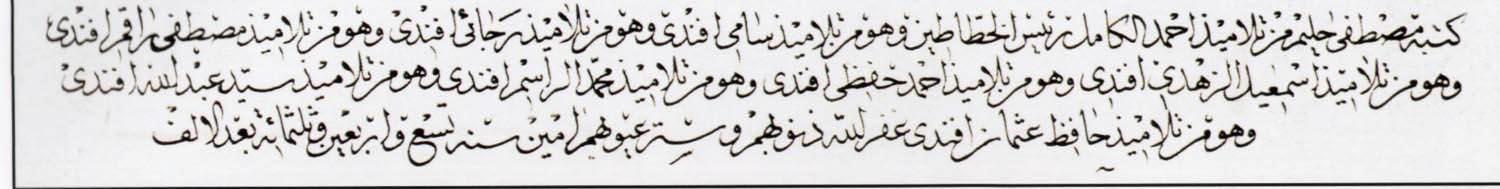 كتبه مصطفى حليم من تلاميذ احمد الكامل رئيس الخطاطين وهو من تلاميذ سامى افندى وهو من تلاميذ رجائى افندى وهو من تلاميذ مصطفى راقم افندى
وهو من تلاميذ اسمعيل الزهدى افندى وهو من تلاميذ احمد حفظى افندى وهو من تلاميذ محمد الراسم افندى وهو من تلاميذ سيد عبد الله افندى
وهو من تلاميذ حافظ عثمان افندى غفر الله ذنوبهم وستر عيوبهم امين سنه تسع واربعين وثلثمائة بعد الالف